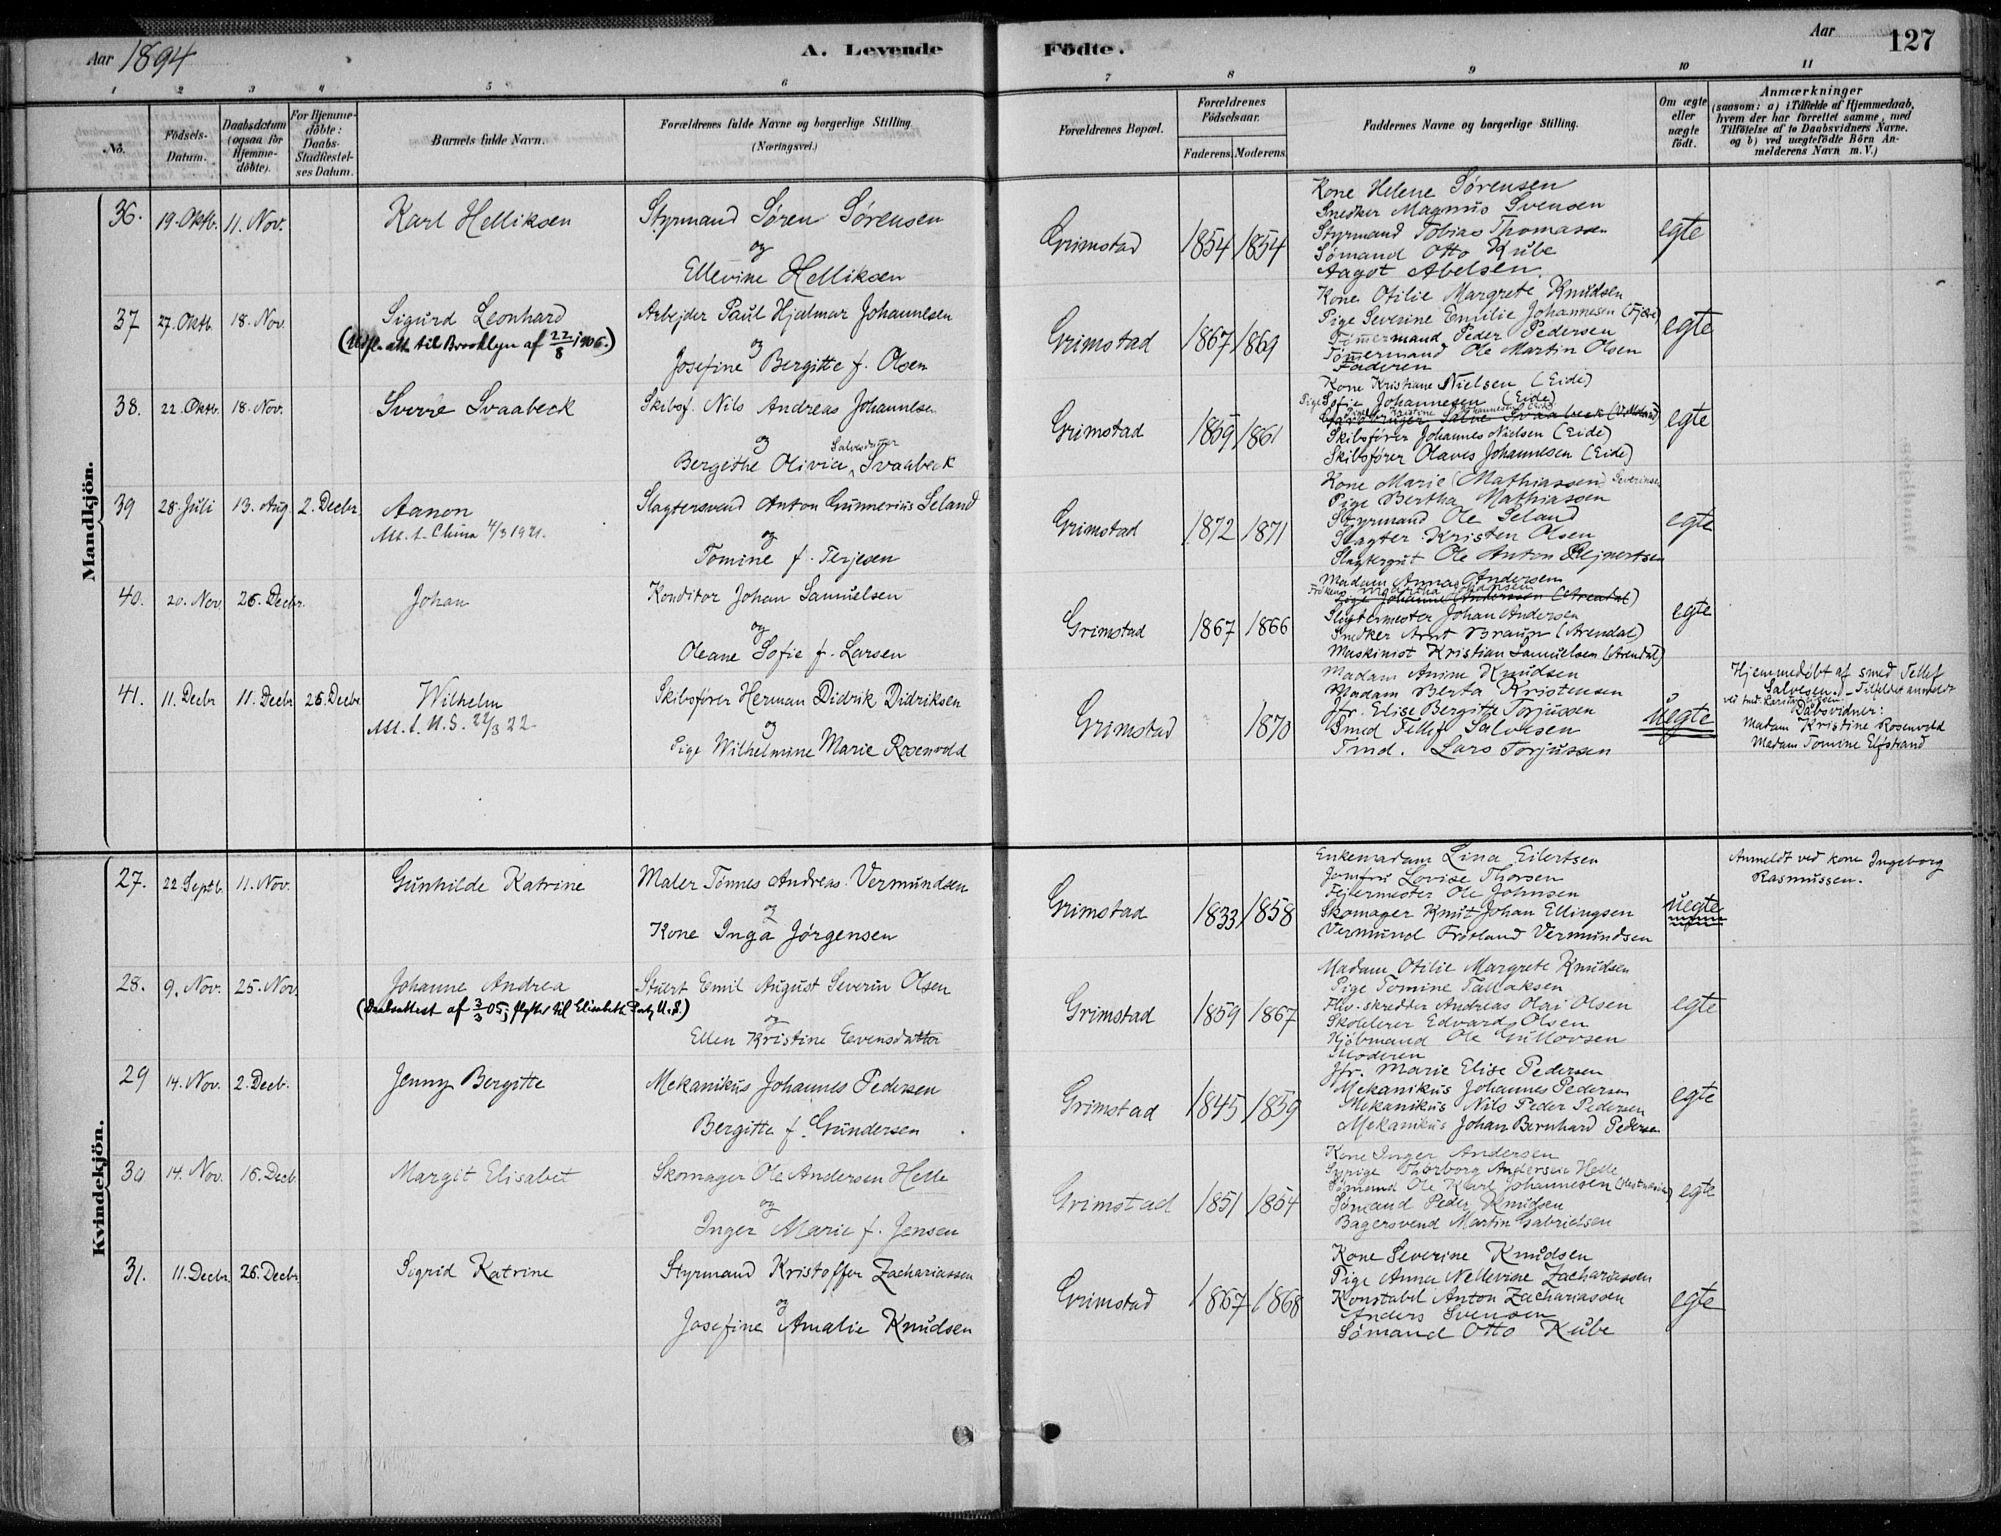 Aar 1894
A. Levende
Födte.
Aar
127
1 2 3 4 5 6 7 8 9 10 11
No.
Födsels-
Datum.
Daabsdatum
(ogsaa for
Hjemme-
döbte).
For Hjemme-
döbte:
Daabs-
Stadfæstel-
ses Datum.
Barnets fulde Navn.
Forældrenes fulde Navne og borgerlige Stilling
(Næringsvei.)
Forældrenes Bopæl.
Forældrenes
Födselsaar.
Faderens. Moderens.
Faddernes Navne og borgerlige Stilling.
Om ægte
eller
uægte
født.
Anmærkninger
(saasom: a) i Tilfælde af Hjemmedaab,
hvem der har forrettet samme, med
Tilföielse af to Daabsvidners Navne.
og b) ved uægtefödte Börn An-
melderens Navn m. V.)
Mandkjön.
36. 19. Oktb. 11. Nov.
Karl Helliksen
Styrmand Sören Sörensen
og
Ellevine Helliksen
Grimstad 1854 1854
Kone Helene Sörensen
Snedker Magnus Svensen
Styrmand Tobias Thomassen
Sömand Otto Kube
Aagot Abelsen.
egte
37 27. Oktb. 18. Nov.
Sigurd Leonhard
til Brooklyn af 22/8 1906.)
Arbejder Paul Hjalmar Johannesen
og
Josefine Bergitte f. Olsen
Grimstad 1867 1869
Kone Otilie Margrete Knudsen
Pige Severine Emilie Johannesen (Fjære)
Tömmermand Peder Pedersen
Tömmermand Ole Martin Olsen
Faderen
egte
38. 22. Oktb. 18. Nov.
Sverre Svaabeck
Skibsf. Nils Andreas Johannesen
og
Salvesdatter
Bergithe Olivia Svaabeck
Grimstad 1859 1861
Kone Kristiane Nielsen (Eide)
Pige Sofie Johannesen (Eide)
Skibsförer Johannes Nielsen (Eide)
Skibsförer Olaves Johannesen (Eide)
egte
39 28. Juli 13. Aug. 2. Decbr.
Aanon
Att. t. China 4/3 1921.
Slagtersvend Anton Gunnerius Seland
og
Tomine f. Terjesen
Grimstad 1872 1871
Kone Marie (Mathiassen) Severinsen
Pige Bertha Mathiassen
Styrmand Ole Seland
Slagter Kristen Olsen
Slagtergut Ole Anton Rejnertsen
egte
40. 20. Nov. 26. Decbr.
Johan
Konditor Johan Samuelsen
og
Oleane Sofie f. Larsen
Grimstad 1867 1866
Madam Anna Andersen
Pige Johanne Andersen (Arendal)
Slagtermester Johan Andersen
Snedker Arnt Braun (Arendal)
Maskinist Kristian Samuelsen (Arendal)
egte
41. 11. Decbr. 11. Decbr. 26. Decbr.
Wilhelm
Att. t. U.S. 22/3 22.
Skibsförer Herman Didrik Didriksen
og
Pige Wilhelmine Marie Rosenvold
Grimstad 1870
Madam Anine Knudsen
Madam Berta Kristensen
Jfr. Elise Bergitte Torjussen
Smed Tellef Salvesen
Tmd. Lars Torjussen
uegte
Hjemmedöbt af smed Tellef
Salvesen.
Dabsvidner:
Madam Kristine Rosenvold
Madam Tomine Elfstrand
Kvindekjön.
27. 22 Septb. 11. Nov.
Gunhilde Katrine
Maler Tönnes Andreas Vermundsen
og
Kone Inga Jörgensen
Grimstad 1833 1858
Enkemadam Lina Eilertsen
Jomfru Lovise Thorsen
Fejermester Ole Johnsen
Skomager Knut Johan Ellingsen
Vermund Frötland Vermundsen
uegte
Anmeldt ved kone Ingeborg
Rasmussen.
28. 9. Nov. 25. Nov.
Johanne Andrea
(Daabsattest af 3/3 05; flytter til Elisabeth U.S.)
Stuert Emil August Severin Olsen
og
Ellen Kristine Evensdatter
Grimstad 1859 1867
Madam Otilie Margrete Knudsen
Pige Tomine Tallaksen
skredder Andreas Olai Olsen
Edvard Olsen
Kjöbmand Ole Gullovsen
Moderen
egte
29 14. Nov. 2. Decb.
Jenny Bergitte
Mekanikus Johannes Pedersen
Bergitte f. Gundersen
Grimstad 1845 1859
Jfr. Marie Elise Pedersen
Mekanikus Johannes Pedersen
Mekanikus Nils Peder Pedersen
Mekanikus Johan Bernhard Pedersen
egte
30 14. Nov. 16. Decb.
Margit Elisabet
Skomager Ole Andersen Helle
og
Inger Marie f. Jensen
Grimstad 1851 1854
Kone Inger Andersen
Sypige Thorborg Andersen Helle
Sömand Ole Karl Johannesen
Sömand Peder Knudsen
Bagersvend Martin Gabrielsen
egte
31. 11. Decbr. 26. Decbr.
Sigrid Katrine
Styrmand Kristoffer Zachariassen
og
Josefine Amalie Knudsen
Grimstad 1867 1868
Kone Severine Knudsen
Pige Anna Nellevine Zachariassen
Konstabel Anton Zachariassen
Anders Svensen
Sömand Otto Kube
egte